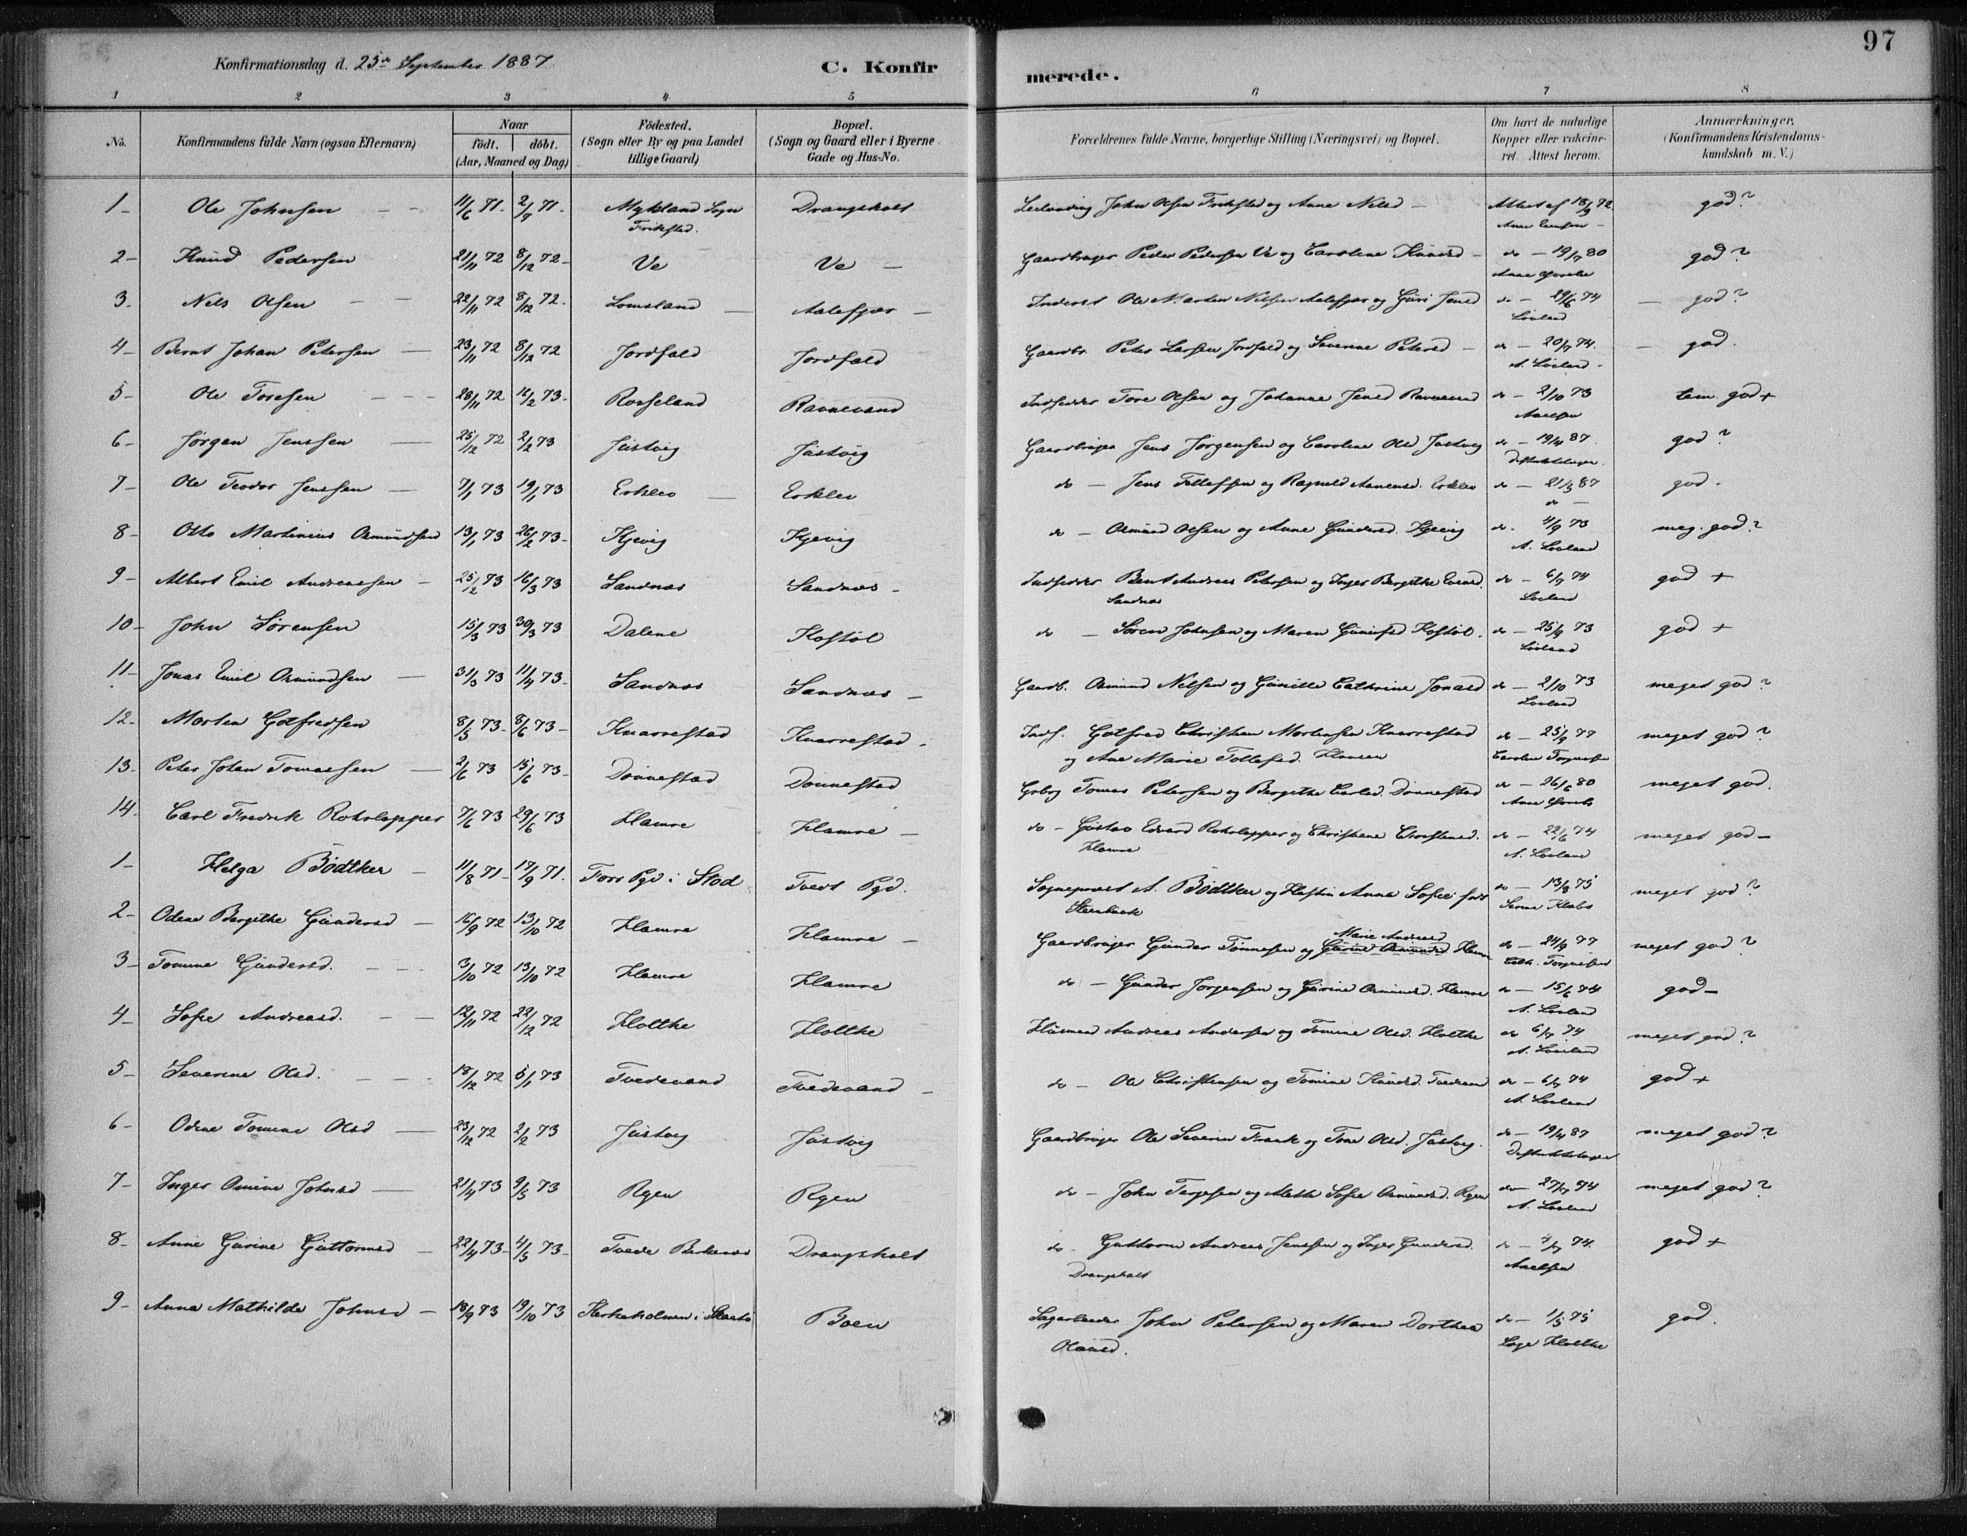 97
Konfirmationsdag d. 25de September 1887
C. Konfirmerede.
1 2 3 4 5 6 7 8
No. Konfirmandens fulde Navn (ogsaa Efternavn) Naar födt. döbt. (Aar, Maaned og Dag) Födested. (Sogn eller By og paa Landet tillige Gaard) Bopæl. (Sogn og Gaard eller i Byerne Gade og Hus-No. Forældrenes fulde Navne, borgerlige Stilling (Næringsvei) og Bopæl. Om havt de naturlige Kopper eller vakcineret. Attest herom. Anmærkninger, (Konfirmandens Kristendomskundskab m. V.)
1 - Ole Johnsen 11/6 71. 2/7 71. Mykland Sogn Frikstad. Drangsholt John Olsen Frikstad og Anne Nilsd - Attest af 18/9 72 god?
2 - Knud Pedersen 21/11 72 8/12 72 - Ve Ve - Gaardbruger Peder Pedersen Ve og Caroline Knudsd - do - 19/7 80 god?
3. Nels Olsen 22/11 72 8/12 72. Lomsland - Aalefjær - Inderst Ole Marten Nilsen Aalefjær og Guri Jensd do - 29/6 74 Lövland god?
4 - Bernt Johan Petersen 23/11 72 8/12 72 Jordfald Jordfald Gaardbr. Peter Larsen Jordfald og Severine Petersd - do - 20/7 74. A. Lövland - god.
5 - Ole Toresen 28/11 72 16/2 73. Rosseland Ravnevand Indsidder Tore Olsen og Johanne Jensd Ravnevand do - 2/10 73 Axelsen tem. god +
6 - Jørgen Jenssen 25/12 72 2/2 73 Justvig Justvig Gaardbruger Jens Jørgensen og Caroline Olsd Justvig do - 19/4 87. Distriktslægen. god?
7 - Ole Teodor Jenssen 7/1 73 19/1 73 Erklev - Erklev do - Jens Tellefsen og Ragnild Aanensd. Erklev do - 21/3 87 do - god.
8 - Otto Martinius Osmundsen 13/1 73 26/2 73 - Kjevig Kjevig do - Osmund Olsen og Anne Gundersd. Kjevig do. 4/9 73 A. Lövland meg. god?
9 - Albert Emil Andreassen - 25/2 73 16/3 73 Sandnæs Sandnæs - Indsidder Bent Andreas Petersen og Inger Bergithe Evensd. Sandnæs do - 6/7 74 Lövland god +
10 - John Sørensen 15/3 73 30/3 73 Dalene Kostöl do - Søren Johnsen og Maren Gunufsd Kostöl. do - 25/9 73 Lövland god +
11 - Jonas Emil Osmundsen 31/3 73 11/4 73 - Sandnæs Sandnæs - Gaardb. Osmund Nilsen og Gunille Cathrine Jonasd do - 2/10 73 Lövland meget god?
12. Morten Gotfredsen 8/5 73 - 8/6 73 - Knarrestad Knarrestad - Inds. Gotfred Christian Mortensen Knarrestad og Ane Marie Tollefsd. Hamren do - 25/9 77 meget god?
13. Peter Johan Tomassen 2/6 73 15/6 73 - Dönnestad Dönnestad Grbrg Tomas Petersen og Bergithe Carlsd. Dönnestad do - 26/6 80 meget god.
14. Carl Fredrik Rohrlapper 7/6 73 29/6 73 Hamre Hamre - do - Gustav Edvard Rohrlapper og Christiane Christensd. Hamre do - 22/6 74 A. Lövland meget god -
1 - Helga Bödtker - 11/8 71 - 17/9 71. Foss Pgd i Stod Tvedt Pgd. Sogneprest A. Bödtker og Hustru Anna Sofie født Steenbuch do - 13/8 75 meget god?
2 - Odine Bergithe Gundersd - 16/9 72 13/10 72 Hamre Hamre - Gaardbruger Gunder Tönnesen og Marie Andreasd Hamre do - 24/9 77 meget god?
3 - Tomine Gundersd. 3/10 72 13/10 72 Hamre Hamre do - Gunder Jørgensen og Gurine Osmundsd. Hamre do - 15/6 74 A. Lövland god -
4 - Sofie Andreasd. 12/11 72 22/12 72 Holtthe Holtthe Husmand Andreas Andersen og Tomine Olsd. Holtthe do 6/7 74 A. Lövland meget god?
5 - Severine Olsd. 18/12 72 5/1 73 Tvedevand Tvedevand - do - Ole Christensen og Tomine Knudsd. Tvedevand do - 6/7 74 A. Lövland god +
6 - Odine Tomine Olsd 23/12 72 2/2 73 Justvig Justvig Gaardbruger Ole Severin Frank og Tone Olsd. Justvig. do - 19/4 87 Distriktslægen meget god?
7 - Inger Omine Johnsd - 21/4 73 9/5 73 Rgen Rgen do - John Terjesen og Methe Sofie Osmundsd. Rgen do - 27/7 74 A. Lövland meget god?
8 - Anne Gurine Guttormsd 22/4 73 - 4/5 73 - Tvede Birkenæs Drangsholt do - Guttorm Andreas Jenssen og Inger Gundersd. Drangsholt do - 4/7 74. Axelsen god +
9 - Anna Mathilde Johnsd - 18/9 73 19/10 73 Boen John Petersen og Maren Dorthea Olausd. do - 1/5 75 god.